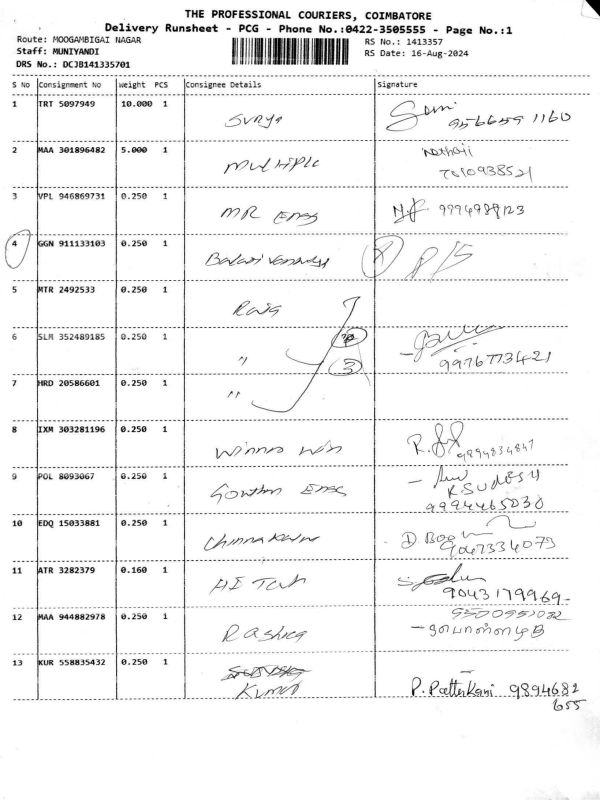 THE PROFESSIONAL COURIERS, COIMBATORE
Delivery Runsheet - PCG - Phone No.:0422-3505555 - Page No.:1
Route: MOOGAMBIGAI NAGAR RS No.: 1413357
Staff: MUNIYANDI RS Date: 16-Aug-2024
DRS No.: DCJB141335701
S No Consignment No Weight PCS Consignee Details Signature
1 TRT 5097949 10.000 1
Surya 9566591160
2 MAA 301896482 5.000 1
Multiple 7010938521
3 VPL 946869731 0.250 1
MR Engg 9994988123
4 GGN 911133103 0.250 1
Balaji P/S
5 MTR 2492533 0.250 1
6 SLM 352489185 0.250 1
" 3 9976773421
7 HRD 20586601 0.250 1
"
8 IXM 303281196 0.250 1
Winno Win 9894834847
9 POL 8093067 0.250 1
Gowthm Engg K SUDESH
9994465030
10 EDQ 15033881 0.250 1
9047334073
11 ATR 3282379 0.160 1
HI Tech 9043179969
12 MAA 944882978 0.250 1
13 KUR 558835432 0.250 1
Kumar P. Patturkani 9894682
655